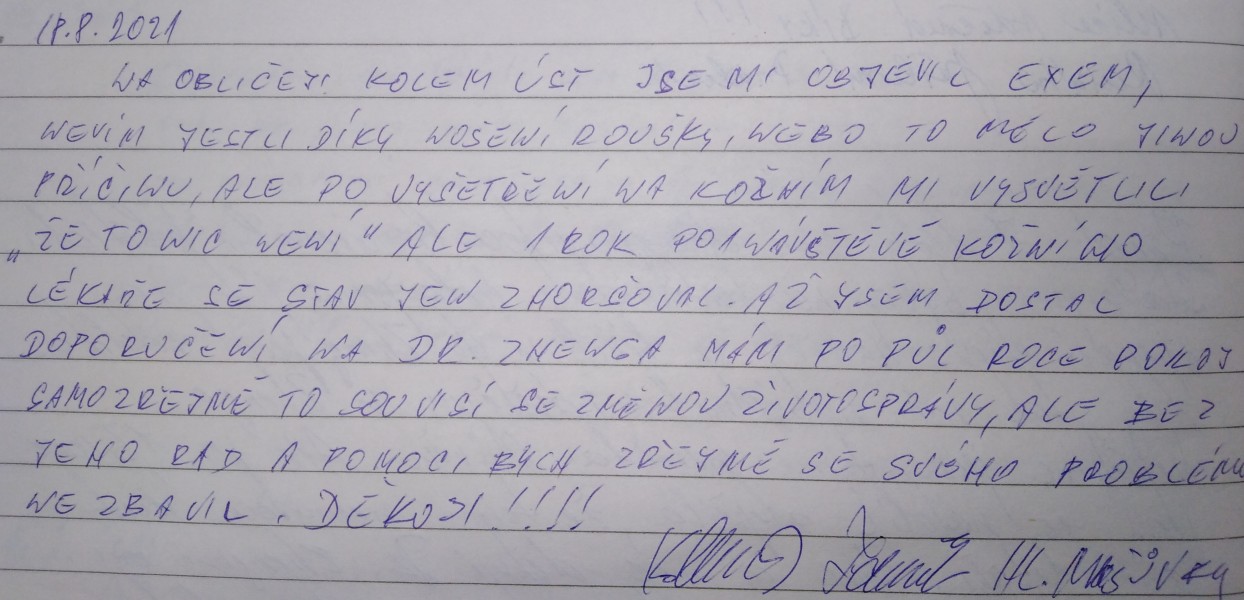 18.8.2021
NA OBLIČEJI KOLEM ÚST JSE MI OBJEVIL EXEM,
NEVÍM JESTLI DÍKY NOŠENÍ ROUŠKY, NEBO TO MĚLO JINOU
PŘÍČINU, ALE PO VYŠETŘĚNÍ NA KOŽNÍM MI VYSVĚTLILI
„ŽE TO NIC NENÍ" ALE 1 ROK PO 1 NÁVŠTĚVĚ KOŽNÍHO
LÉKAŘE SE STAV JEN ZHORŠOVAL. AŽ JSEM DOSTAL
DOPORUČĚNÍ NA DR. ZHENGA MÁM PO PŮL ROCE POKOJ
SAMOZŘEJMĚ TO SOUVISÍ SE ZMĚNOU ŽIVOTOSPRÁVY, ALE BEZ
JEHO RAD A POMOCI BYCH ZŘEJMĚ SE SVÉHO PROBLÉMU
NEZBAVIL. DĚKUJI!!!!
HL. MAŠŮVKY